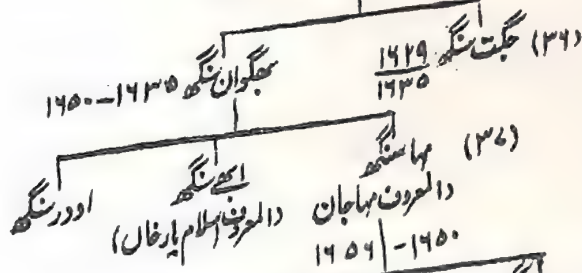 (۳۶) جگت سنگھ ۱۶۲۹
۱۶۳۵
بھگوان سنگھ ۱۶۳۵–۱۶۵۰
(۳۷) مہا سنگھ
(المعروف مہاجان
۱۶۵۰–۱۶۵۶
ابھے سنگھ
(المعروف اسلام یار خاں)
اودر سنگھ